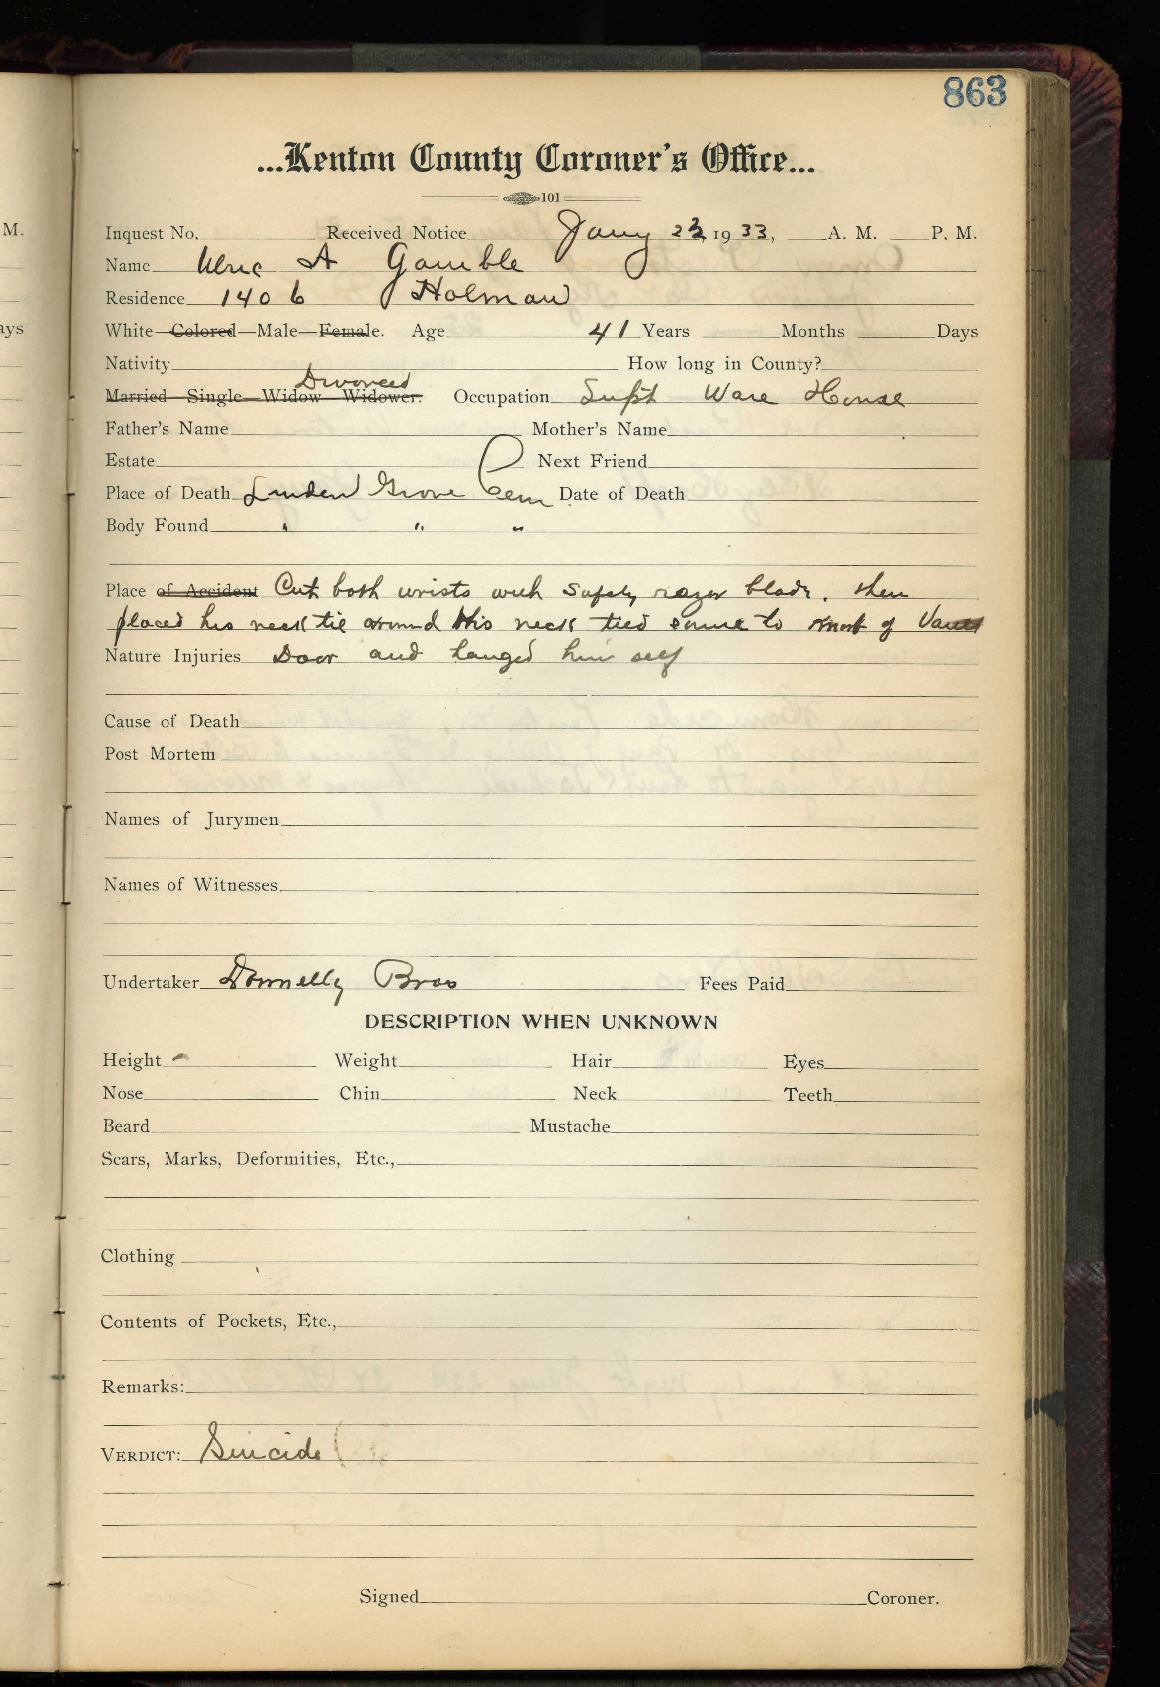 863
...Kenton County Coroner's Office...
101
M.
Inquest No. Received Notice Jany 23, 1933, A. M. P. M.
Name Ulric A Gamble
Residence 1406 Holman
ays
White—Colored—Male—Female. Age 41 Years Months Days
Nativity How long in County?
Divorced
Married—Single—Widow—Widower. Occupation Supt Ware House
Father's Name Mother's Name
Estate Next Friend
Place of Death Linden Grove Cem Date of Death
Body Found " " "
Place of Accident Cut both wrists with Safety razer blade, then
placed his neck tie around his neck tied same to knob of Vault
Nature Injuries Door and hanged him self
Cause of Death
Post Mortem
Names of Jurymen
Names of Witnesses
Undertaker Donnelly Bros Fees Paid
DESCRIPTION WHEN UNKNOWN
Height Weight Hair Eyes
Nose Chin Neck Teeth
Beard Mustache
Scars, Marks, Deformities, Etc.,
Clothing
Contents of Pockets, Etc.,
Remarks:
VERDICT: Suicide
Signed Coroner.